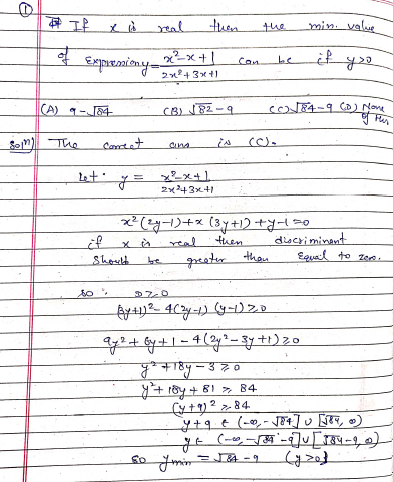 ①
# If x is real then the min. value
of Expression y = x²-x+1 / 2x²+3x+1 can be if y>0
(A) 9-√84 (B) √82-9 (C) √84-9 (D) None of this
Soln) The correct ans is (C).
Let. y = x²-x+1 / 2x²+3x+1
x²(2y-1)+x(3y+1)+y-1=0
if x is real then discriminant
should be greater than equal to zero.
so: D≥0
(3y+1)²-4(2y-1)(y-1)≥0
9y²+6y+1-4(2y²-3y+1)≥0
y²+18y-3≥0
y²+18y+81≥84
(y+9)²≥84
y+9 ∈ (-∞,-√84] ∪ [√84,∞)
y∈ (-∞,-√84-9] ∪ [√84-9,∞)
so ymin = √84-9 (y>0)